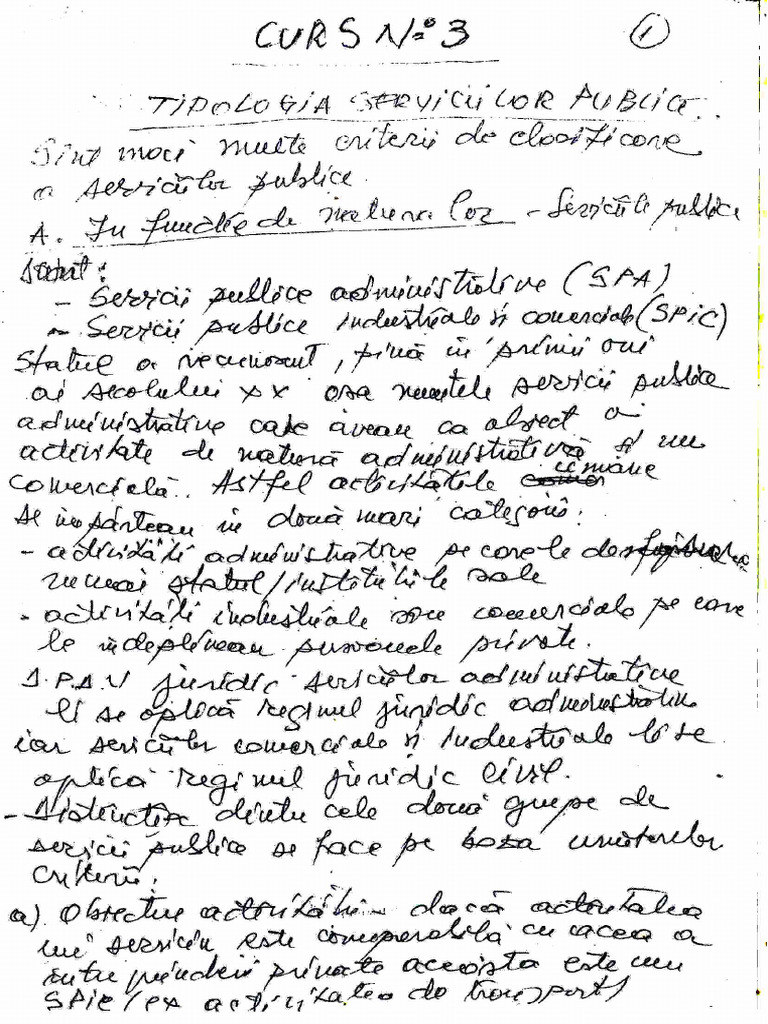 CURS No. 3 1
TIPOLOGIA SERVICIILOR PUBLICE.
Sînt mai multe criterii de clasificare
a serviciilor publice.
A. În funcţie de natura lor - Serviciile publice
sunt:
- Servicii publice administrative (SPA)
- Servicii publice industriale şi comerciale (SPIC)
Statul a recunoscut, pînă în primii ani
ai secolului XX aşa numitele servicii publice
administrative care aveau ca obiect o
activitate de natură administrativă şi nu
comercială. Astfel activităţile umane
se împărţeau în două mari categorii:
- activităţi administrative pe care le desfăşura
numai statul/instituţiile sale
- activităţi industriale sau comerciale pe care
le îndeplineau persoanele private.
D.P.D.V juridic serviciilor administrative
li se aplică regimul juridic administrativ
iar serviciilor comerciale şi industriale li se
aplică regimul juridic civil.
- Distincţia dintre cele două grupe de
servicii publice se face pe baza următoarelor
criterii:
a) Obiectul activităţii - dacă activitatea
unui serviciu este comparabilă cu aceea a
întreprinderii private aceasta este un
SPIC (ex activitatea de transport)